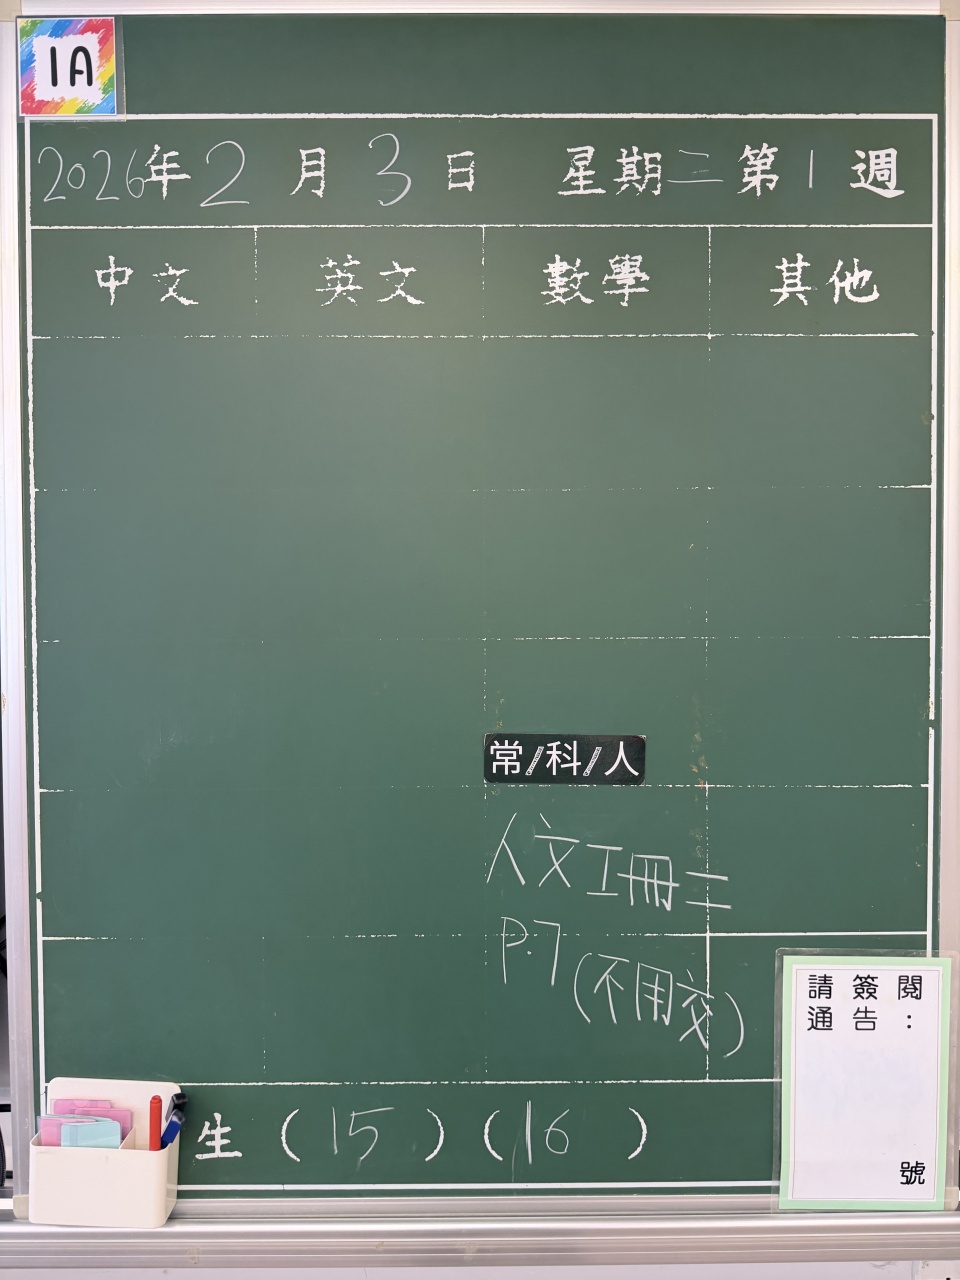 1A
2026年2月3日 星期二第1週
中文 英文 數學 其他
常/科/人
人文工冊二
P.7
(不用交)
請簽閱
通告：
號
生(15)(16)